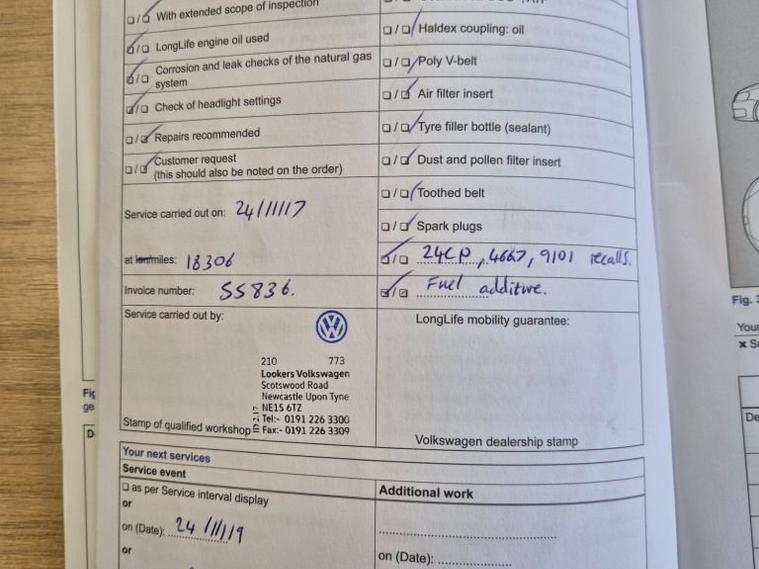 With extended scope of inspection
LongLife engine oil used
Corrosion and leak checks of the natural gas
system
Check of headlight settings
Repairs recommended
Customer request
(this should also be noted on the order)
Service carried out on: 24/11/17
at km/miles: 18306
Invoice number: SS836.
Service carried out by:
210 773
Lookers Volkswagen
Scotswood Road
Newcastle Upon Tyne
NE15 6TZ
Tel:- 0191 226 3300
Fax:- 0191 226 3309
Stamp of qualified workshop
Haldex coupling: oil
Poly V-belt
Air filter insert
Tyre filler bottle (sealant)
Dust and pollen filter insert
Toothed belt
Spark plugs
24CP, 4667, 9101 recalls.
Fuel additive.
LongLife mobility guarantee:
Volkswagen dealership stamp
Your next services
Service event
as per Service interval display
or
on (Date): 24/11/19
or
Additional work
on (Date):
Fig. 3
Your
Fig
ge
D
De